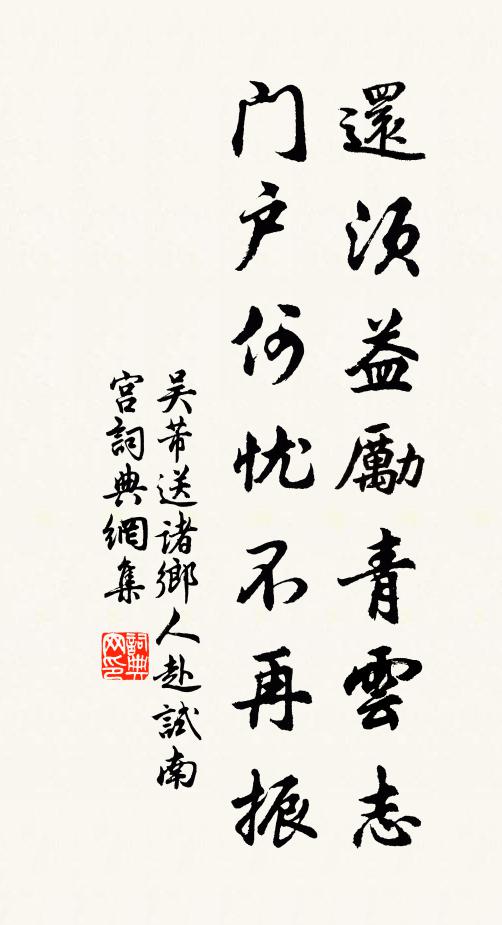 還須益勵青雲志
門户何忧不再振
吴芾送諸鄉人赴試南
宮詞典網集
詞典
网印